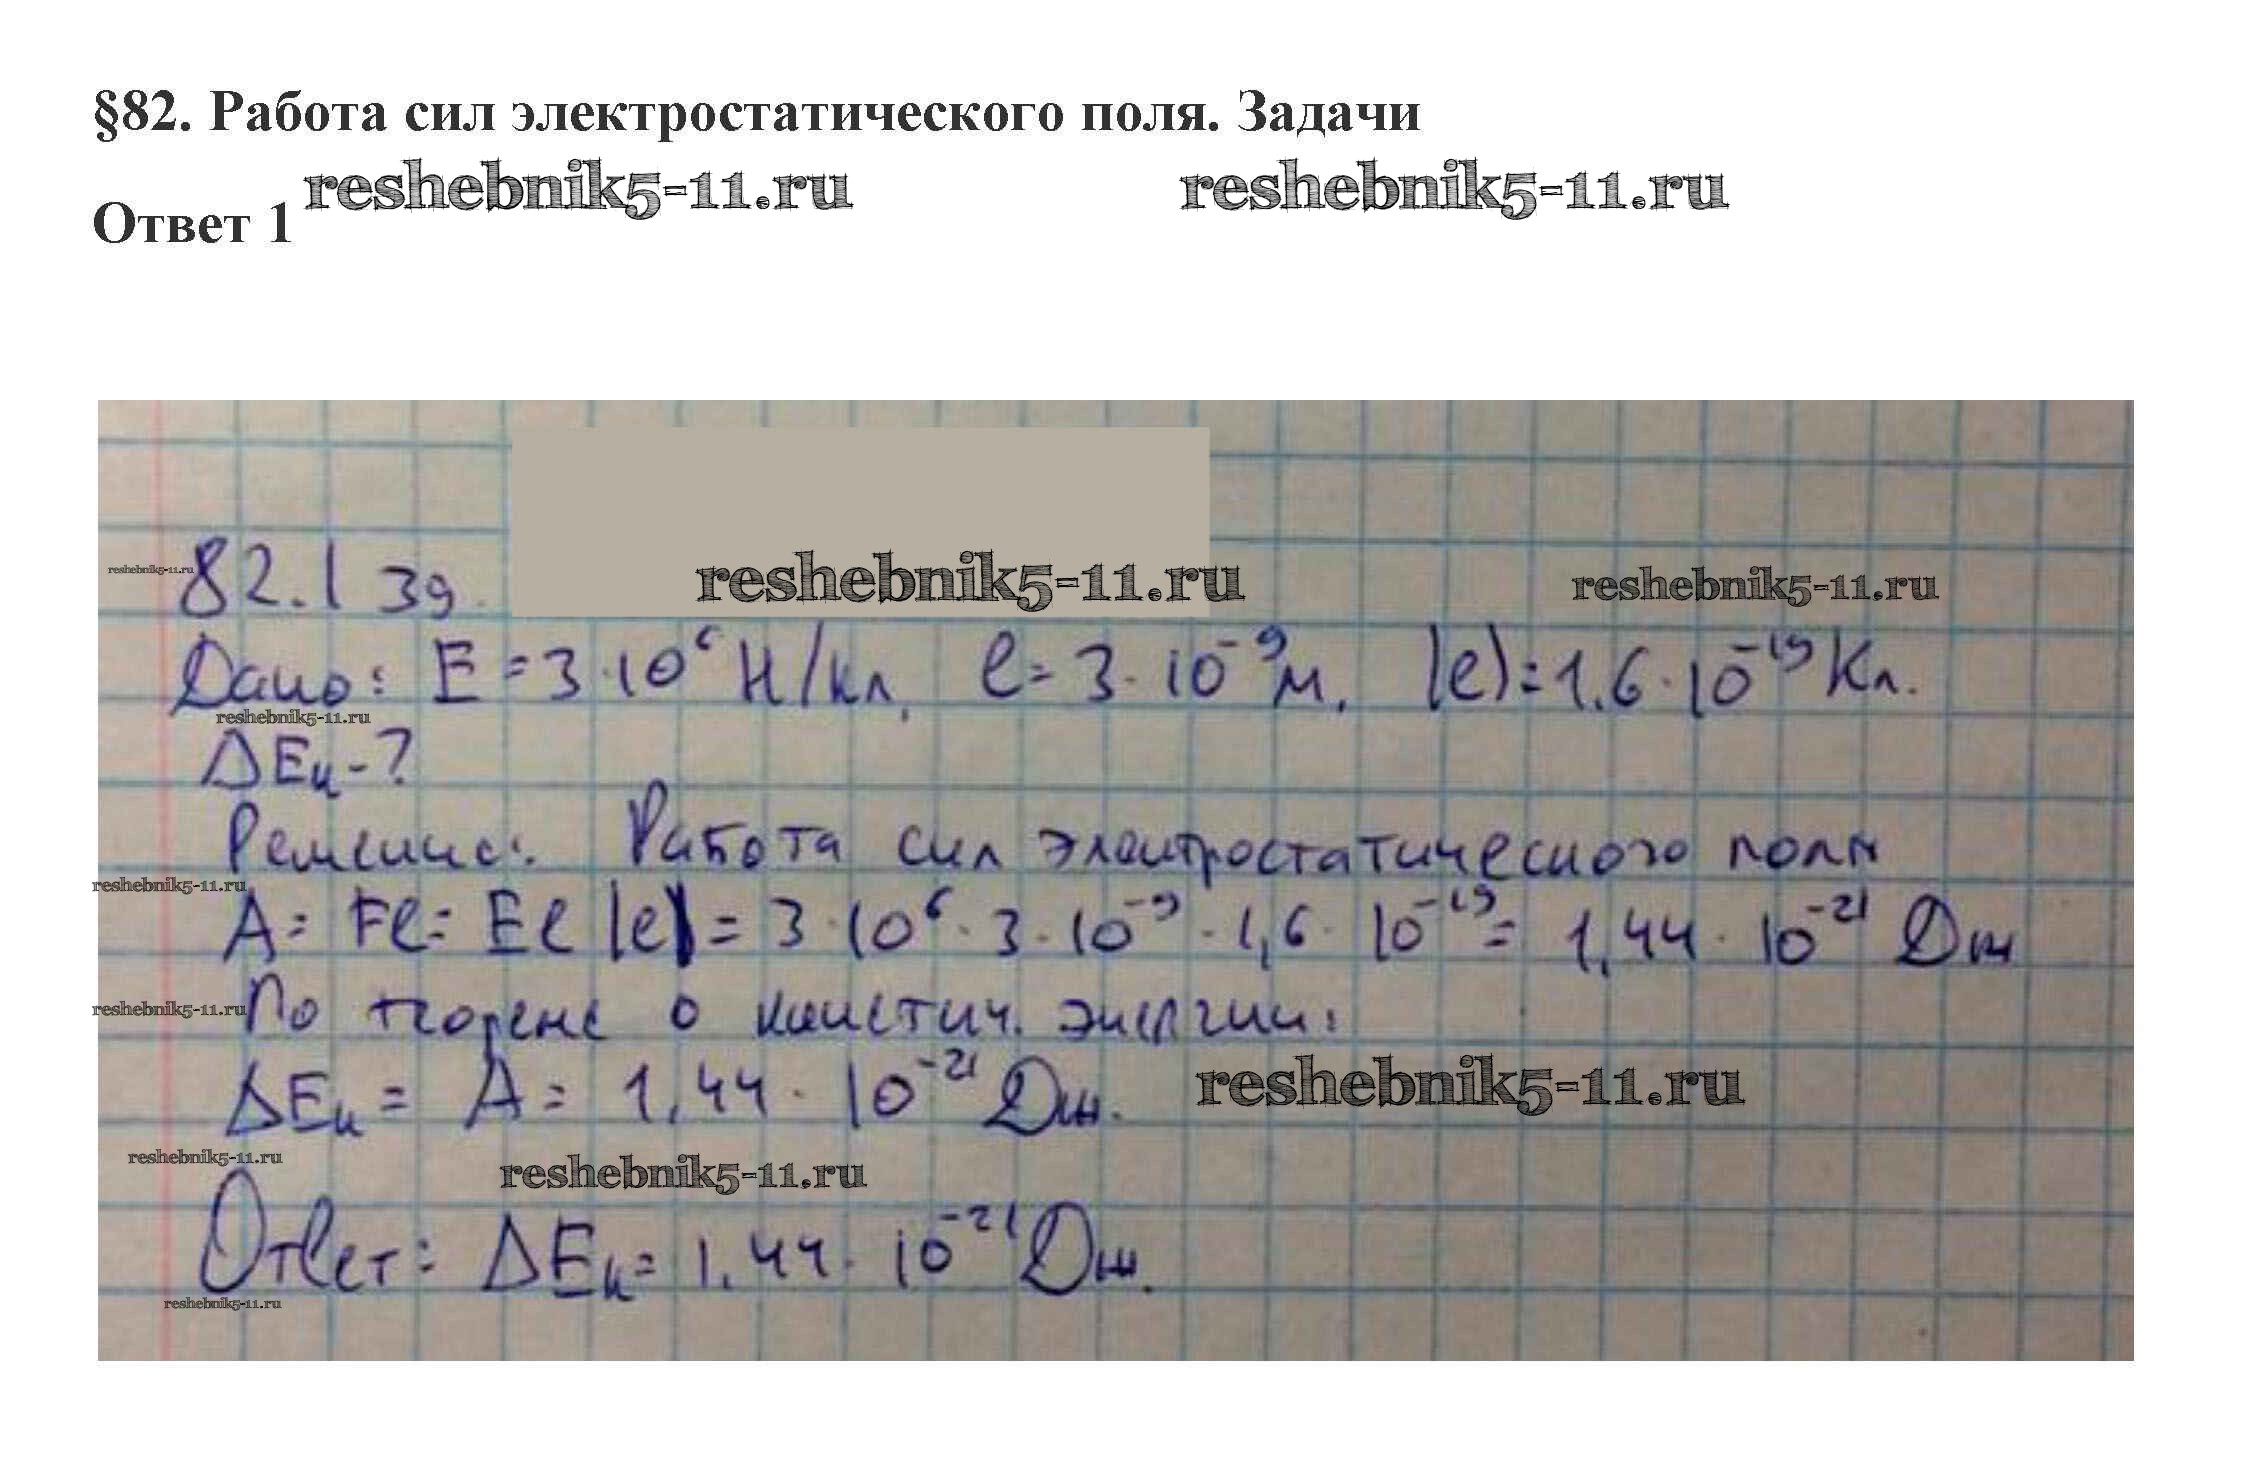 §82. Работа сил электростатического поля. Задачи
reshebnik5-11.ru reshebnik5-11.ru
Ответ 1
82.1 зд.
reshebnik5-11.ru reshebnik5-11.ru reshebnik5-11.ru
Дано: E = 3·10⁶ Н/Кл, l = 3·10⁻⁹ м, |e| = 1.6·10⁻¹⁹ Кл.
reshebnik5-11.ru
ΔEк - ?
Решение: Работа сил электростатического поля
reshebnik5-11.ru
A = Fl = El|e| = 3·10⁶·3·10⁻⁹·1,6·10⁻¹⁹ = 1,44·10⁻²¹ Дж
reshebnik5-11.ru
По теореме о кинетич. энергии:
ΔEк = A = 1,44·10⁻²¹ Дж.
reshebnik5-11.ru
reshebnik5-11.ru reshebnik5-11.ru
Ответ: ΔEк = 1,44·10⁻²¹ Дж.
reshebnik5-11.ru